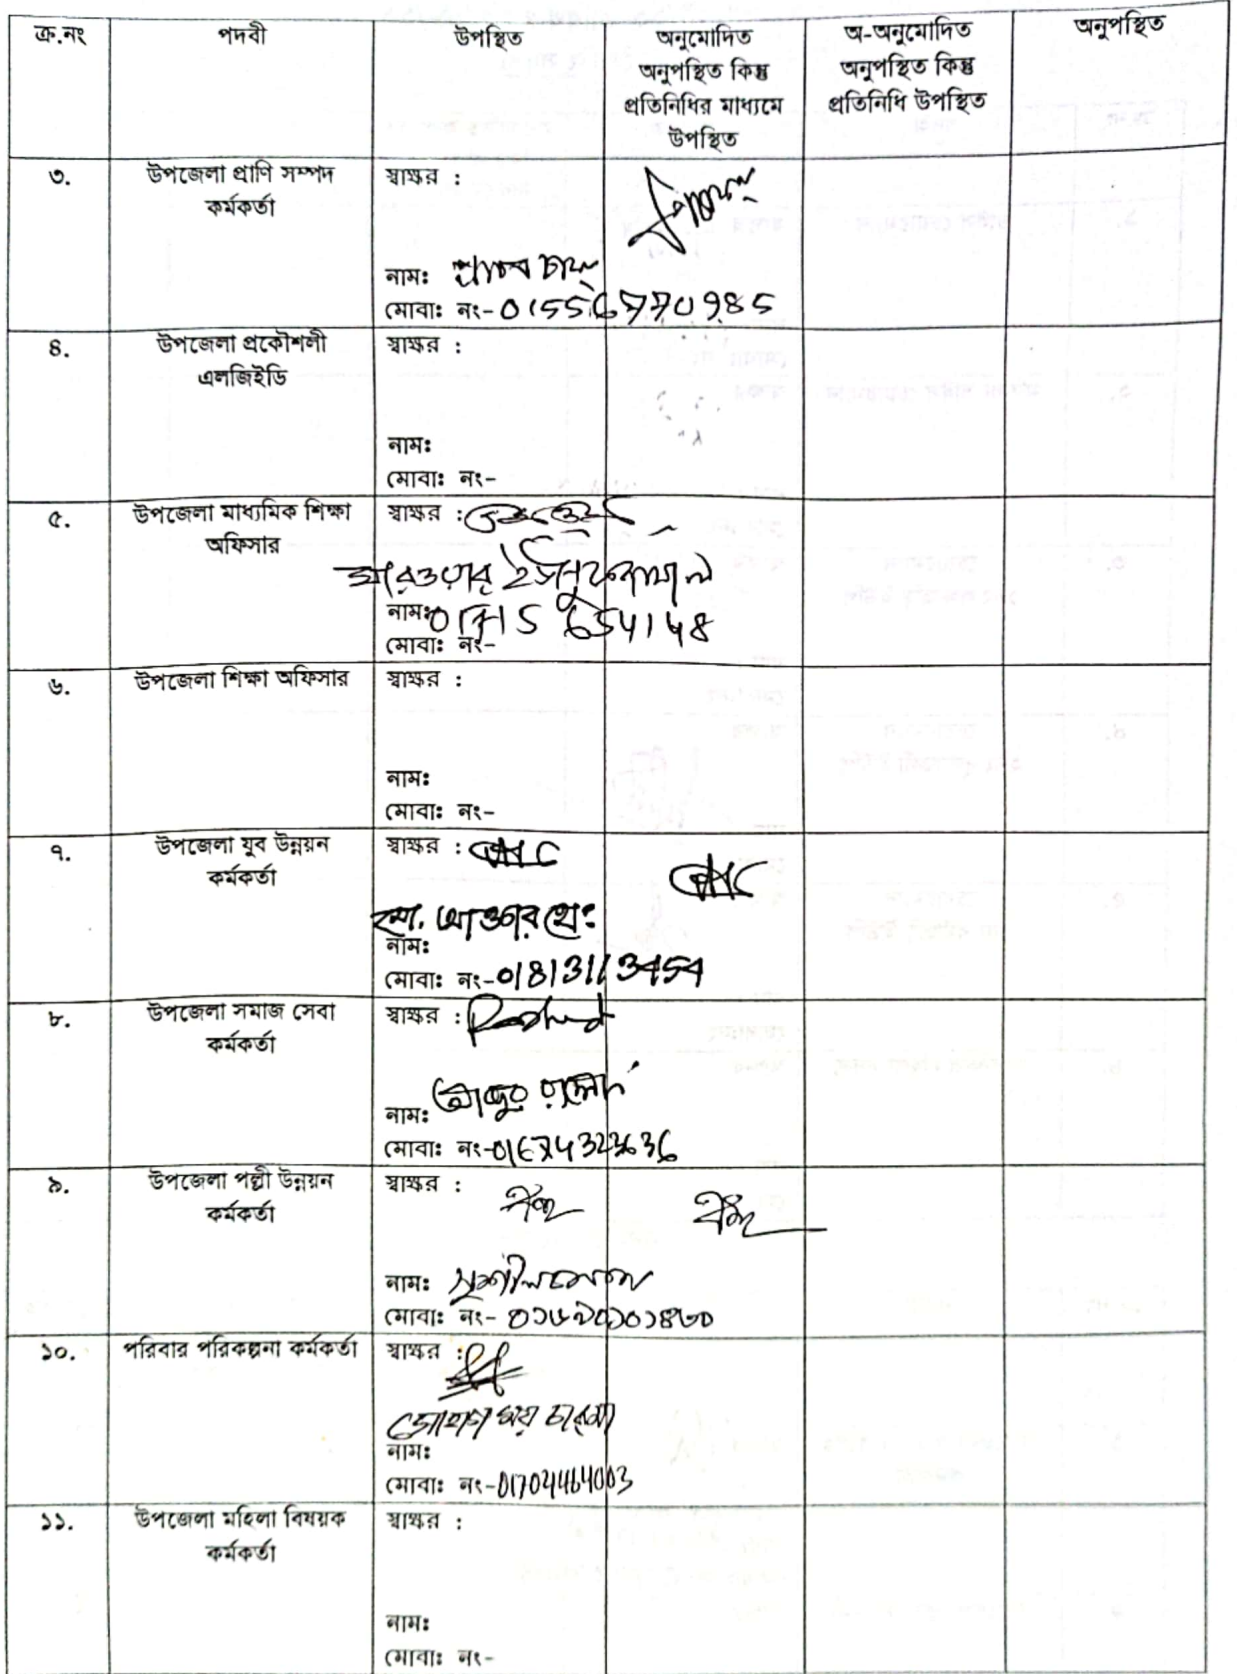 ক্র.নং পদবী উপস্থিত অনুমোদিত অনুপস্থিত কিন্তু প্রতিনিধির মাধ্যমে উপস্থিত অ-অনুমোদিত অনুপস্থিত কিন্তু প্রতিনিধি উপস্থিত অনুপস্থিত
৩. উপজেলা প্রাণি সম্পদ কর্মকর্তা
স্বাক্ষর :
নাম:
মোবাঃ নং- 01556770985
৪. উপজেলা প্রকৌশলী এলজিইডি
স্বাক্ষর :
নাম:
মোবাঃ নং-
৫. উপজেলা মাধ্যমিক শিক্ষা অফিসার
স্বাক্ষর :
নাম:
01715 654148
মোবাঃ নং-
৬. উপজেলা শিক্ষা অফিসার
স্বাক্ষর :
নাম:
মোবাঃ নং-
৭. উপজেলা যুব উন্নয়ন কর্মকর্তা
স্বাক্ষর :
নাম:
মোবাঃ নং-01813113454
৮. উপজেলা সমাজ সেবা কর্মকর্তা
স্বাক্ষর : Rashid
নাম: আব্দুর রশিদ
মোবাঃ নং-01674323636
৯. উপজেলা পল্লী উন্নয়ন কর্মকর্তা
স্বাক্ষর :
নাম:
মোবাঃ নং-
১০. পরিবার পরিকল্পনা কর্মকর্তা
স্বাক্ষর :
চাকমা
নাম:
মোবাঃ নং-01704464003
১১. উপজেলা মহিলা বিষয়ক কর্মকর্তা
স্বাক্ষর :
নাম:
মোবাঃ নং-